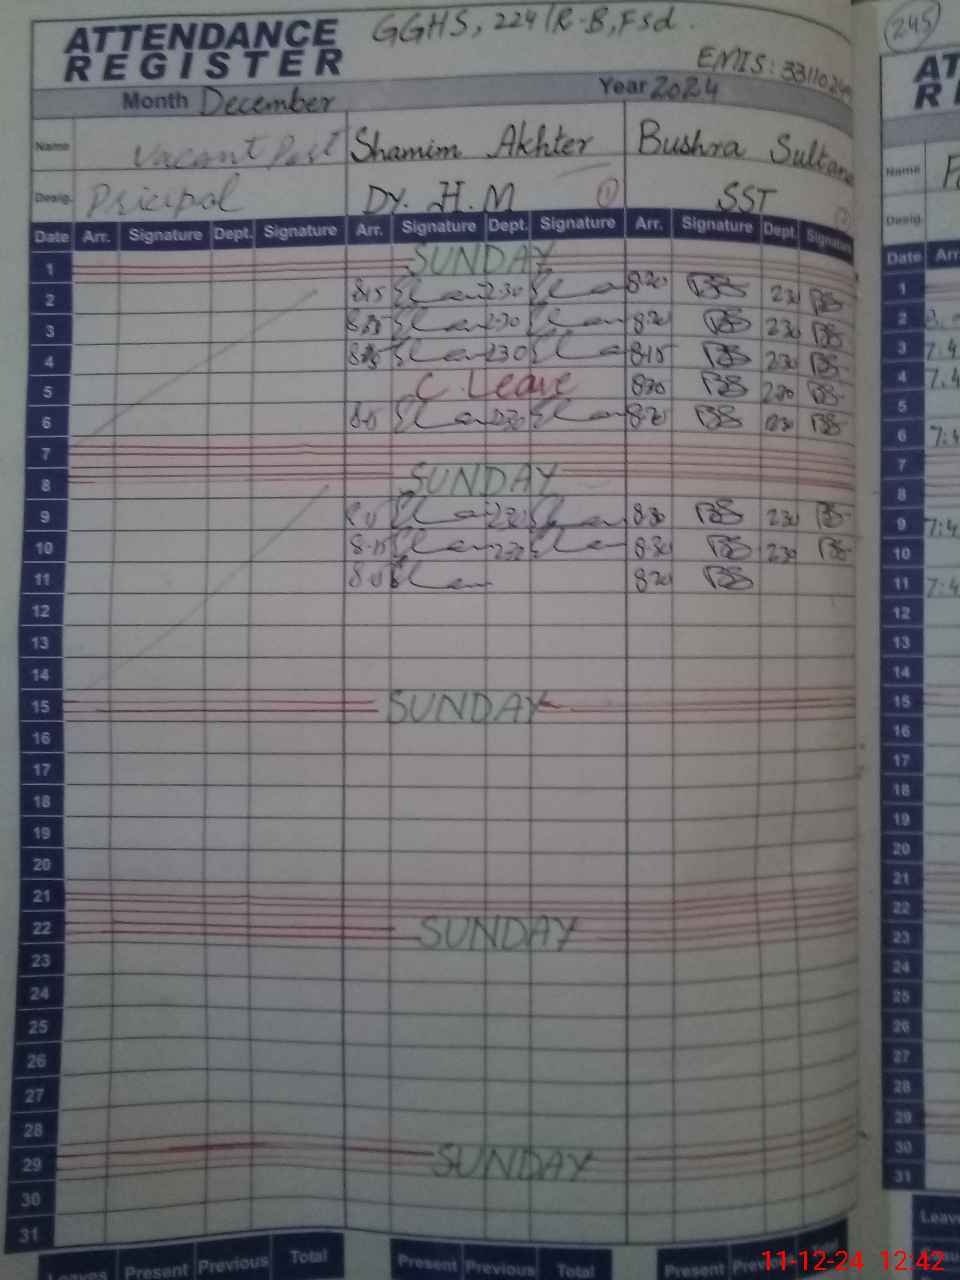 ATTENDANCE REGISTER
GGHS, 224/R-B, Fsd.
EMIS: 3311024
Month December Year 2024
Name Vacant Post Shamim Akhter Bushra Sultana
Desig. Pricipal Dy. H.M 1 SST 2
Date Arr. Signature Dept. Signature Arr. Signature Dept. Signature Arr. Signature Dept. Signature
1 SUNDAY
2 815 230 820 BS 230 BS
3 230 820 BS 230 BS
4 230 815 BS 230 BS
5 C. Leave 820 BS 230 BS
6 230 820 BS 230 BS
7
8 SUNDAY
9 230 830 BS 230 BS
10 8-15 230 830 BS 230 BS
11 820 BS
12
13
14
15 SUNDAY
16
17
18
19
20
21
22 SUNDAY
23
24
25
26
27
28
29 SUNDAY
30
31
Leaves Present Previous Total Present Previous Total Present Previous Total
245
Name
Desig.
Date Arr
1
2
3 7:4
4 7.4
5
6 7:4
7
8
9 7:4
10
11 7:4
12
13
14
15
16
17
18
19
20
21
22
23
24
25
26
27
28
29
30
31
Leave
11-12-24 12:42